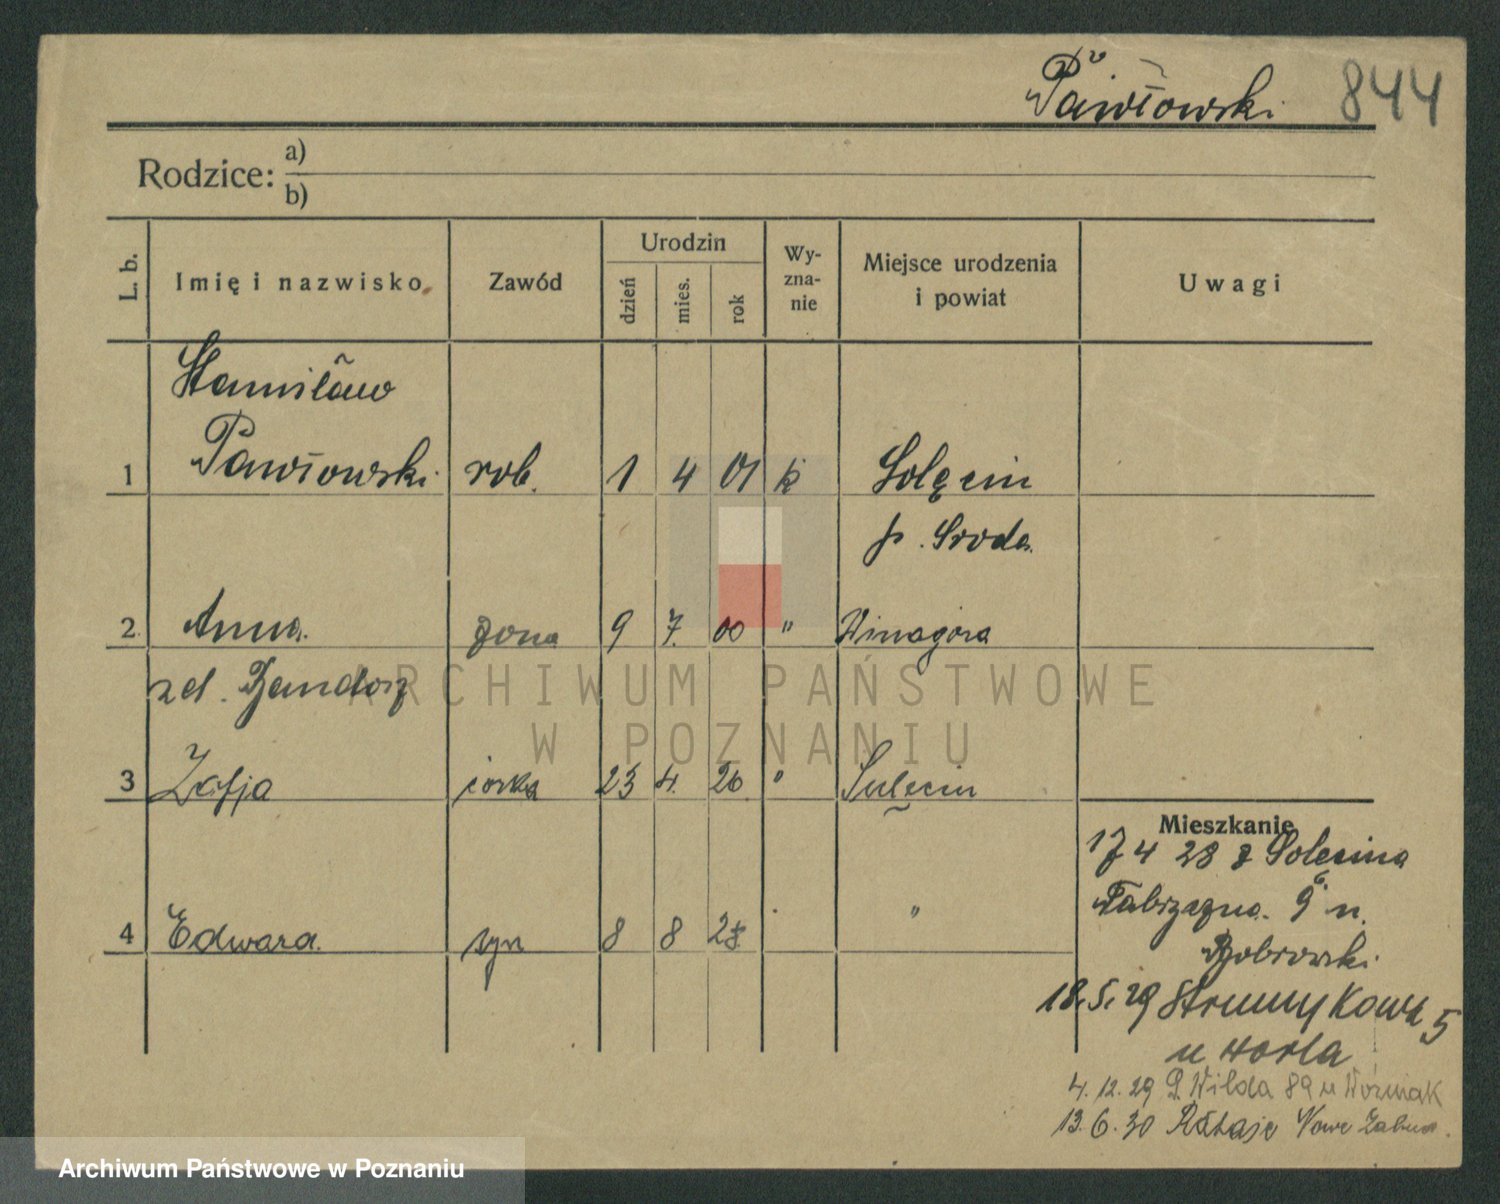 Pawłowski 844
Rodzice: a)
b)
L. b. Imię i nazwisko Zawód Urodzin dzień mies. rok Wy-zna-nie Miejsce urodzenia i powiat Uwagi
Stanisław
1 Pawłowski rob. 1 4 01 k Solęcin
p. Sroda
2. Anna żona 9 7. 00 " Winagóra
zd.
3 Zofja córka 23 4. 26 " Sulęcin
Mieszkanie
17 4 28 z Solęcina
4 Edward syn 8 8 28 "
Fabryczna 9 u.
Bobrowski
18.5.29 Strumykowa 5
u Horla
4.12.29 D. Wilda 89 u Woźniak
13.6.30 Rataje Nowe Zabud.
ARCHIWUM PAŃSTWOWE
W POZNANIU
Archiwum Państwowe w Poznaniu